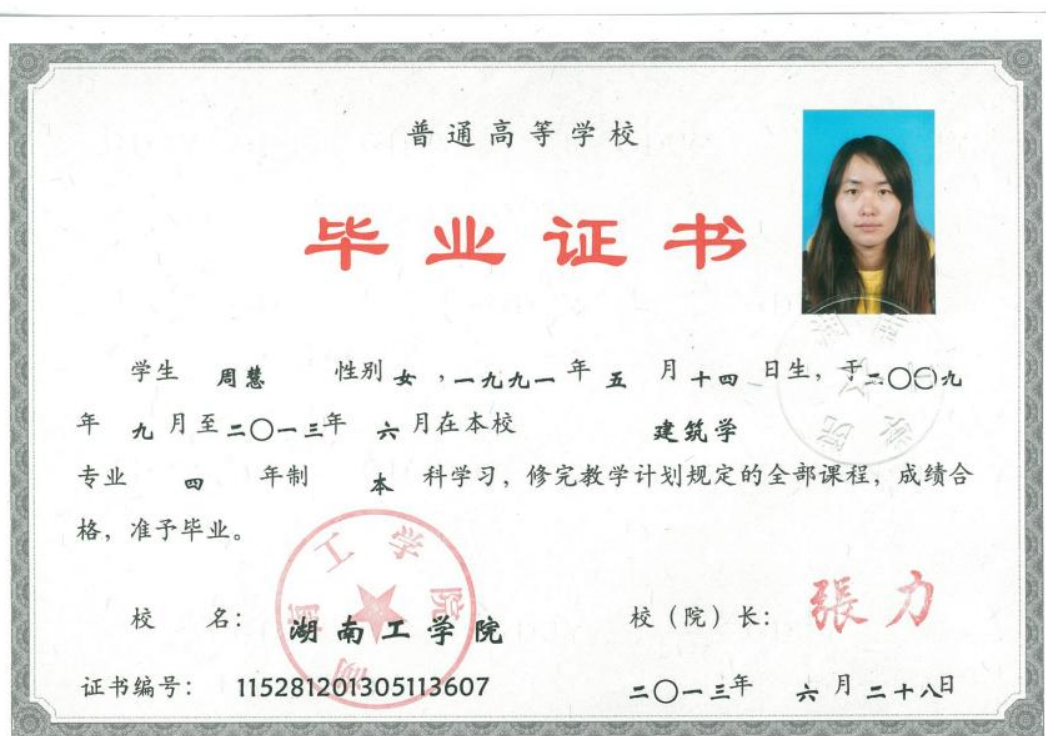 普通高等学校
毕业证书
学生 周慧 性别 女，一九九一 年 五 月 十四 日生，于二〇〇九
年 九 月至二〇一三年 六 月在本校 建筑学
专业 四 年制 本 科学习，修完教学计划规定的全部课程，成绩合
格，准予毕业。
湖南工学院
校 名： 湖南工学院 校（院）长： 張力
证书编号： 115281201305113607 二〇一三年 六 月 二十八日